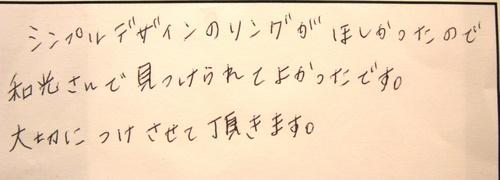 シンプルデザインのリングが ほしかったので
和光さんで見つけられてよかったです。
大切につけさせて頂きます。